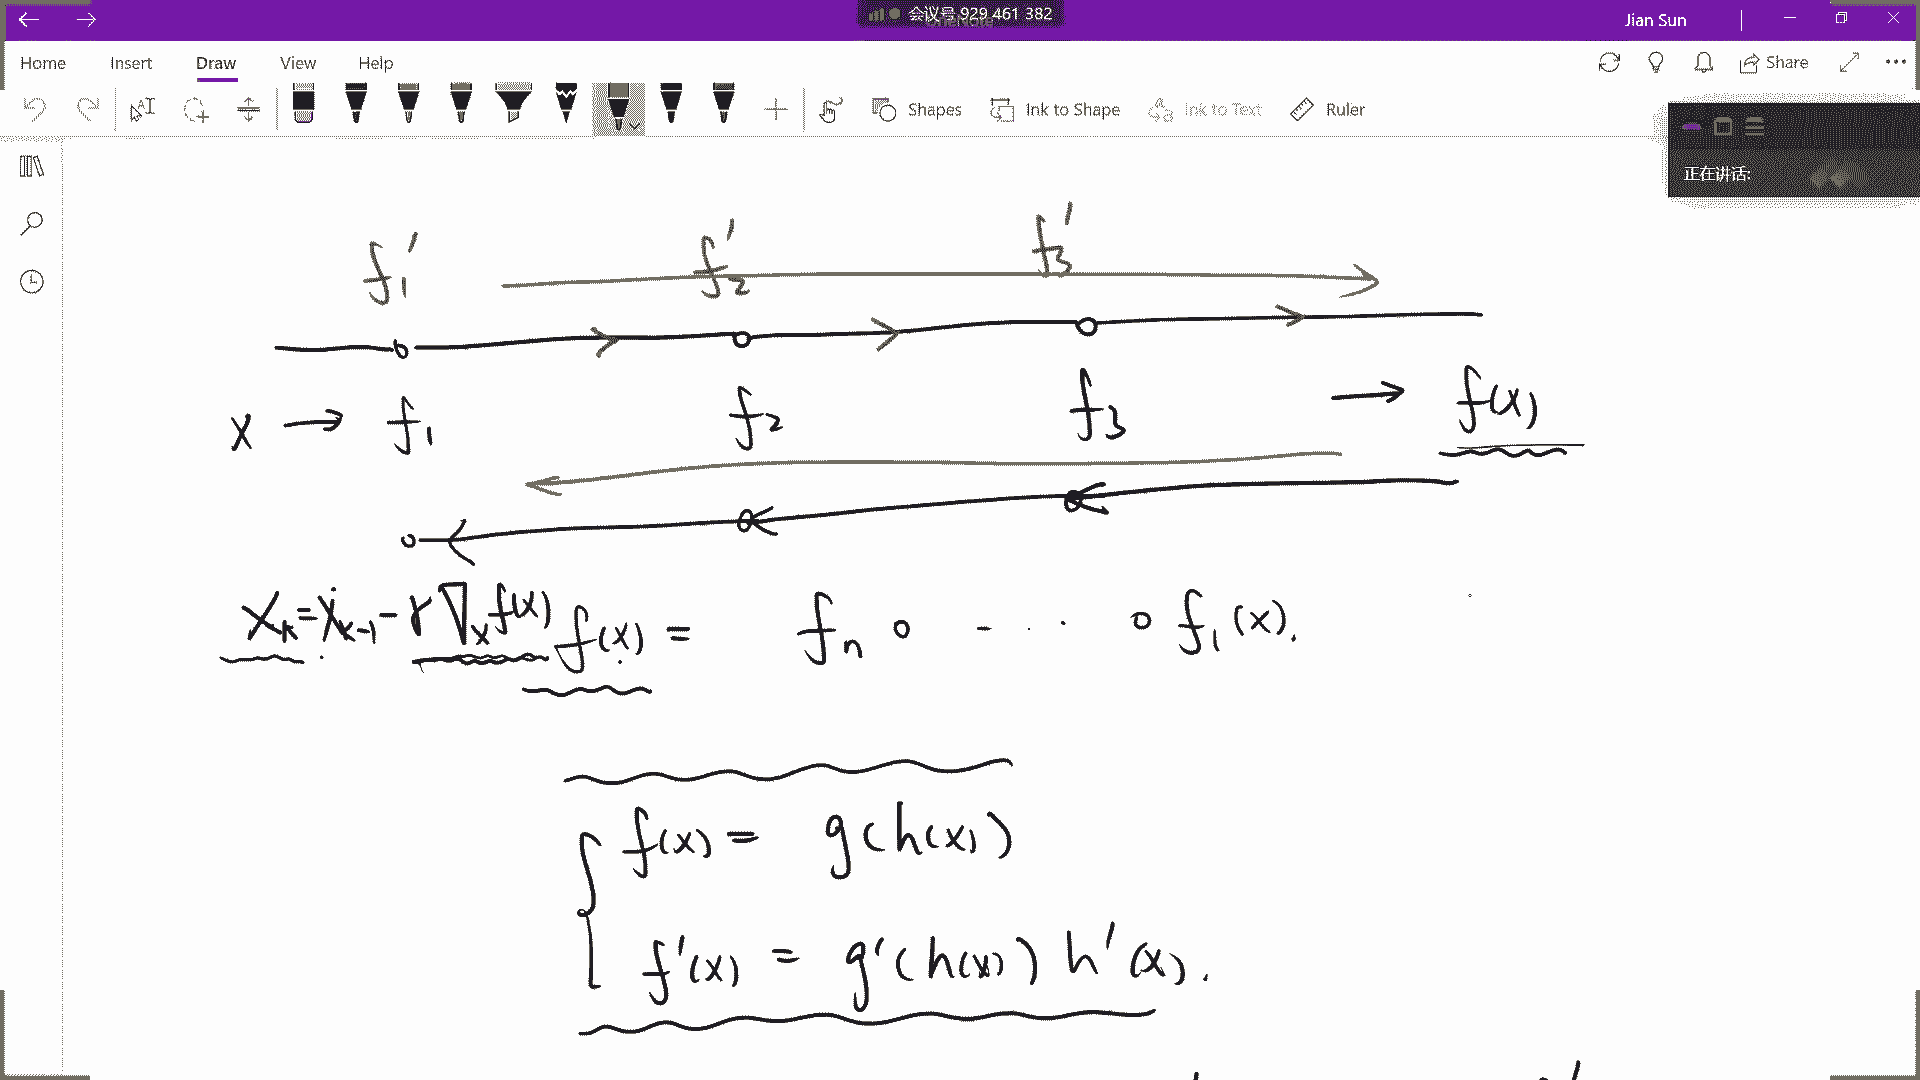 会议号 929 461 382
Jian Sun
Home Insert Draw View Help
Share
Shapes Ink to Shape Ink to Text Ruler
正在讲话:
f₁′ f₂′ f₃′
x → f₁ f₂ f₃ → f(x)
xₖ = xₖ₋₁ - γ∇ₓf(x)
f(x) = fₙ ∘ - · · · ∘ f₁(x).
f(x) = g(h(x))
f′(x) = g′(h(x)) h′(x).